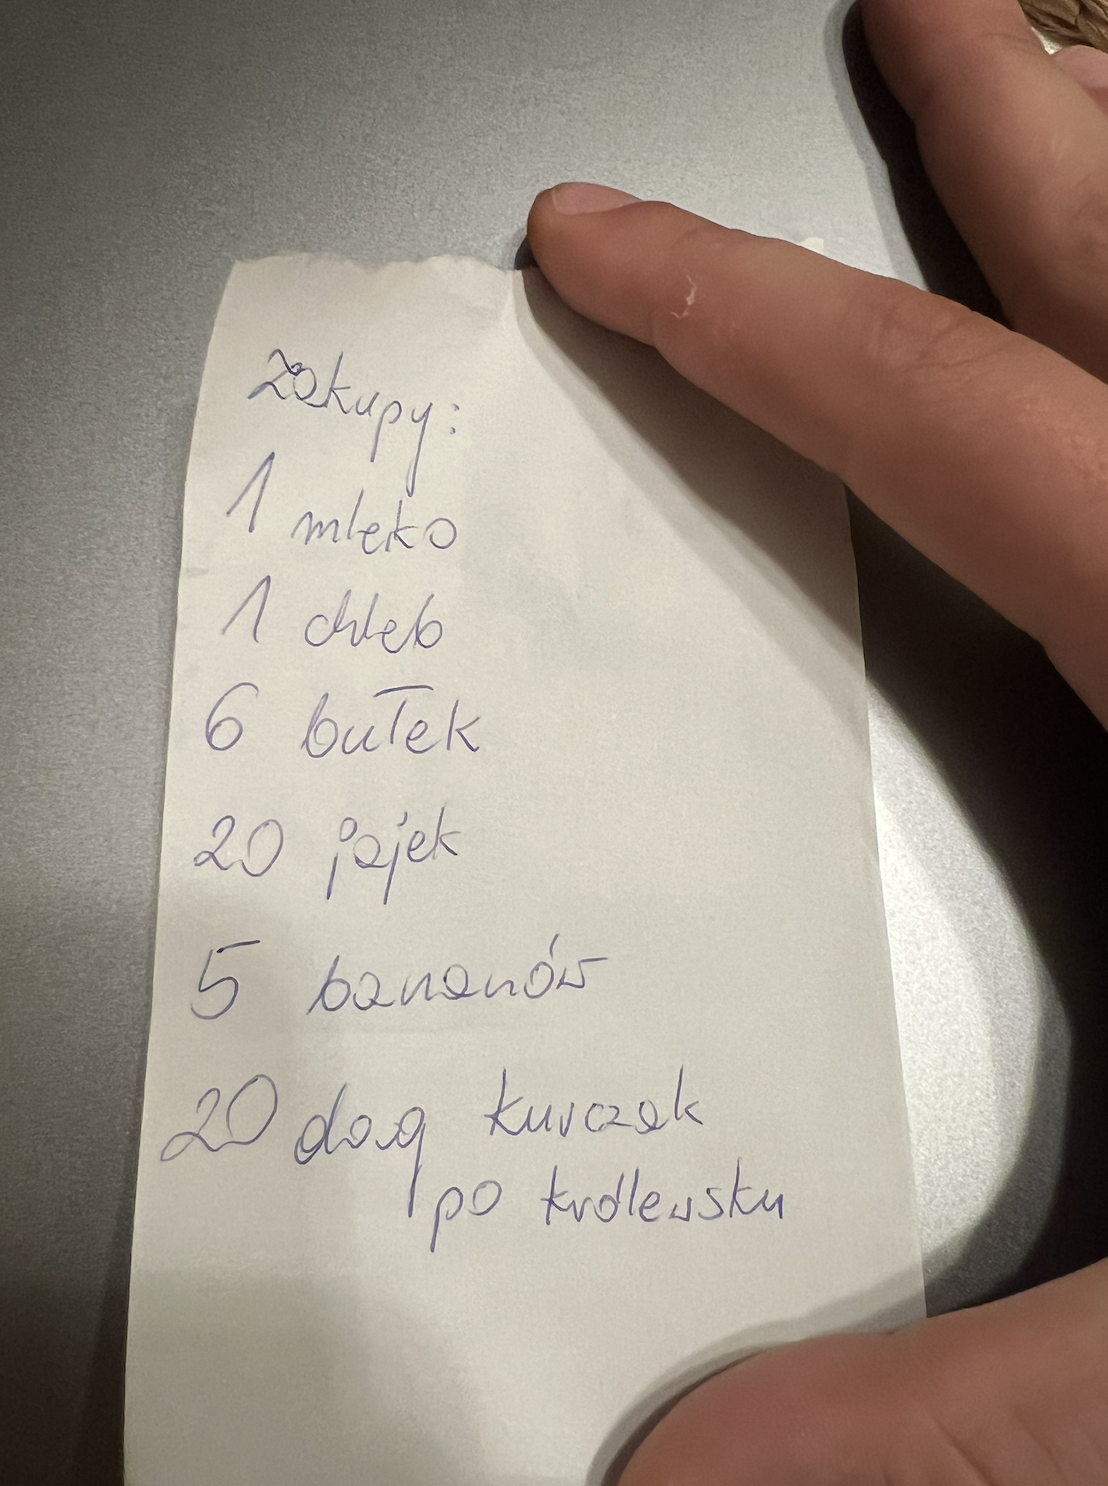 zakupy:
1 mleko
1 chleb
6 bułek
20 jajek
5 bananów
20 dag kurczak
po królewsku